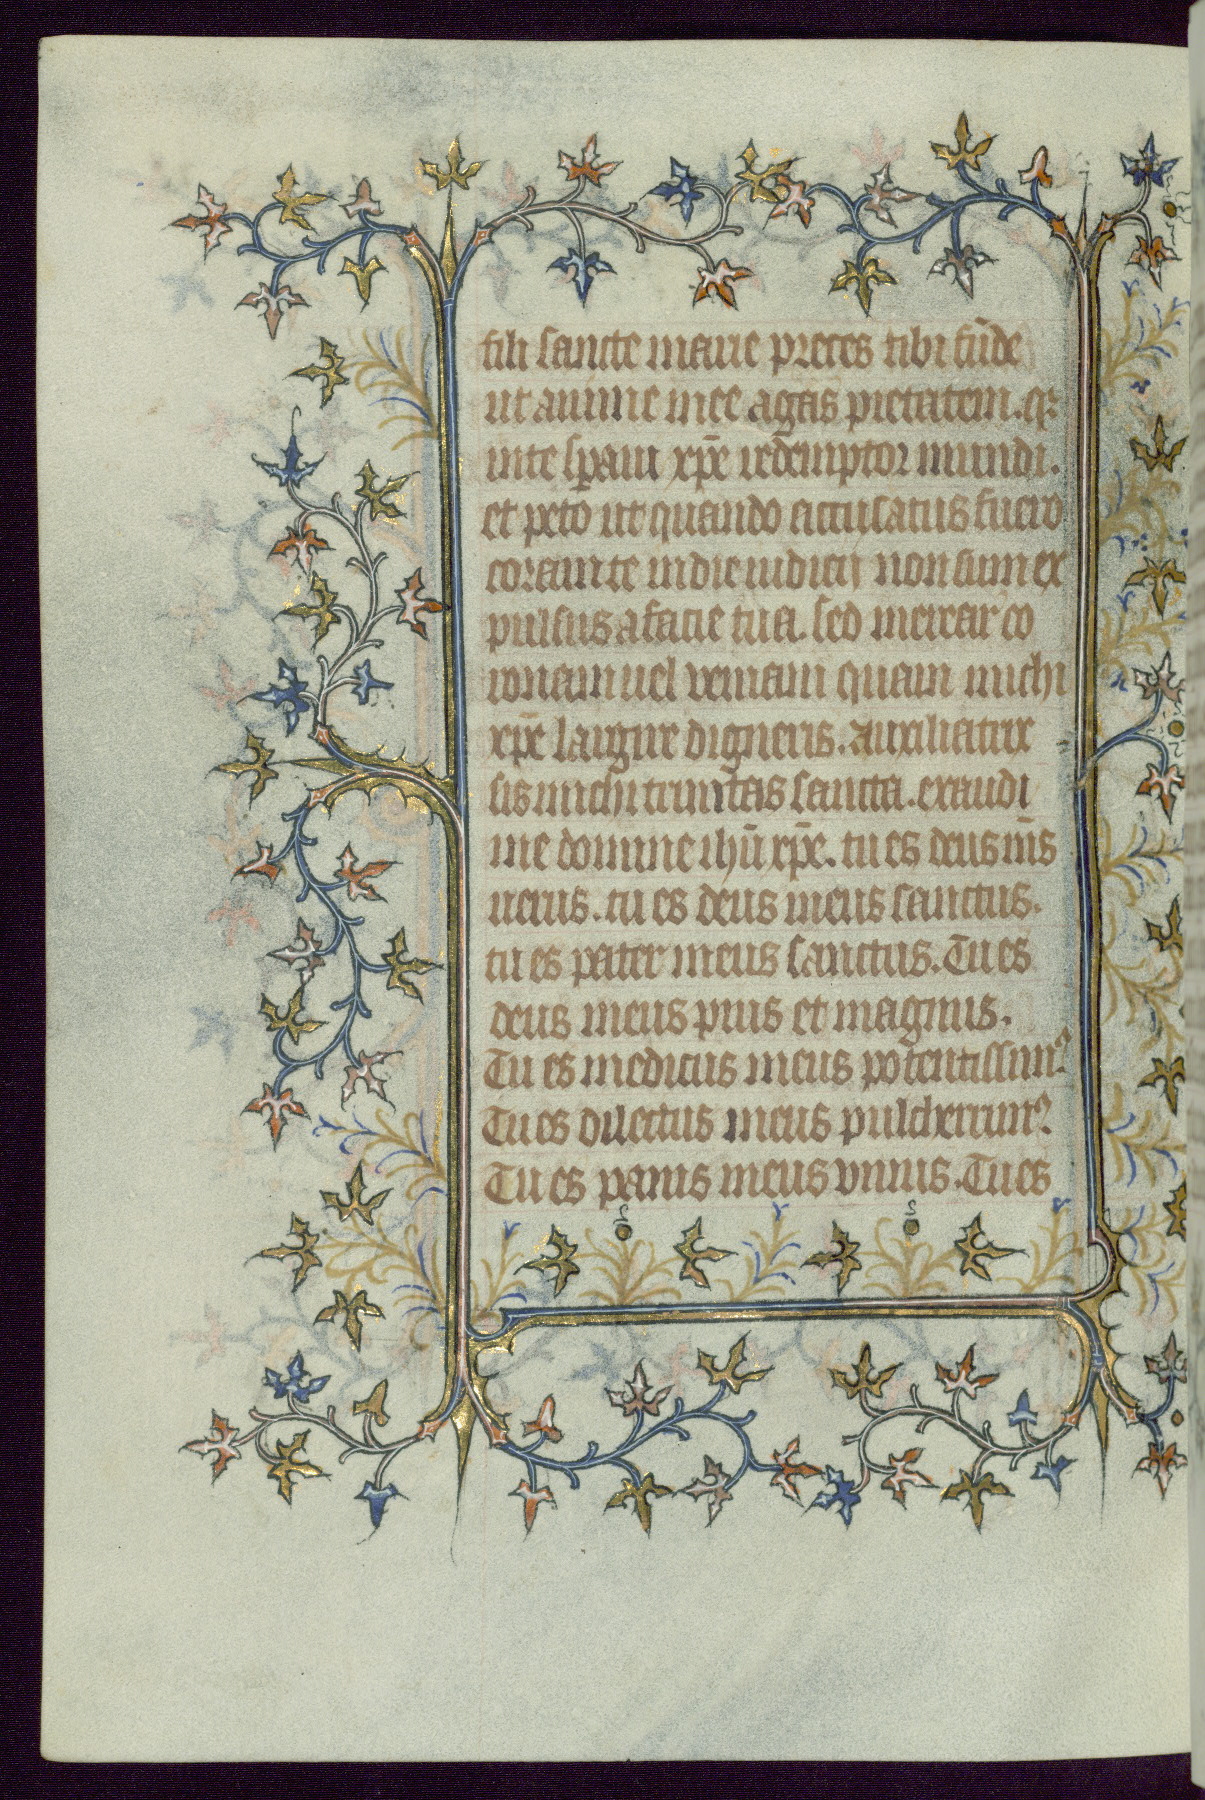 fili sancte marie preces tibi fūde
ut anime mee agas pietatem. q
in te sperani xp̄e redēmptor mundi.
et peto ut quando accusatus fuero
coram te in die iudicij non sum ex
pulsus a facie tua. sed merear co
ronam uel veniam quam michi
xp̄e largire digneris. auxiliatrix
sis michi trinitas sancta. exaudi
me domine ihū xp̄e. tu es deus m̄s
uerus. tu es deus meus sanctus.
tu es pater meus sanctus. Tu es
deus meus pius et magnus.
Tu es medicus meus potentissimꝰ
Tu es dilectus meus pulcherrimꝰ
Tu es panis meus viuus. Tu es